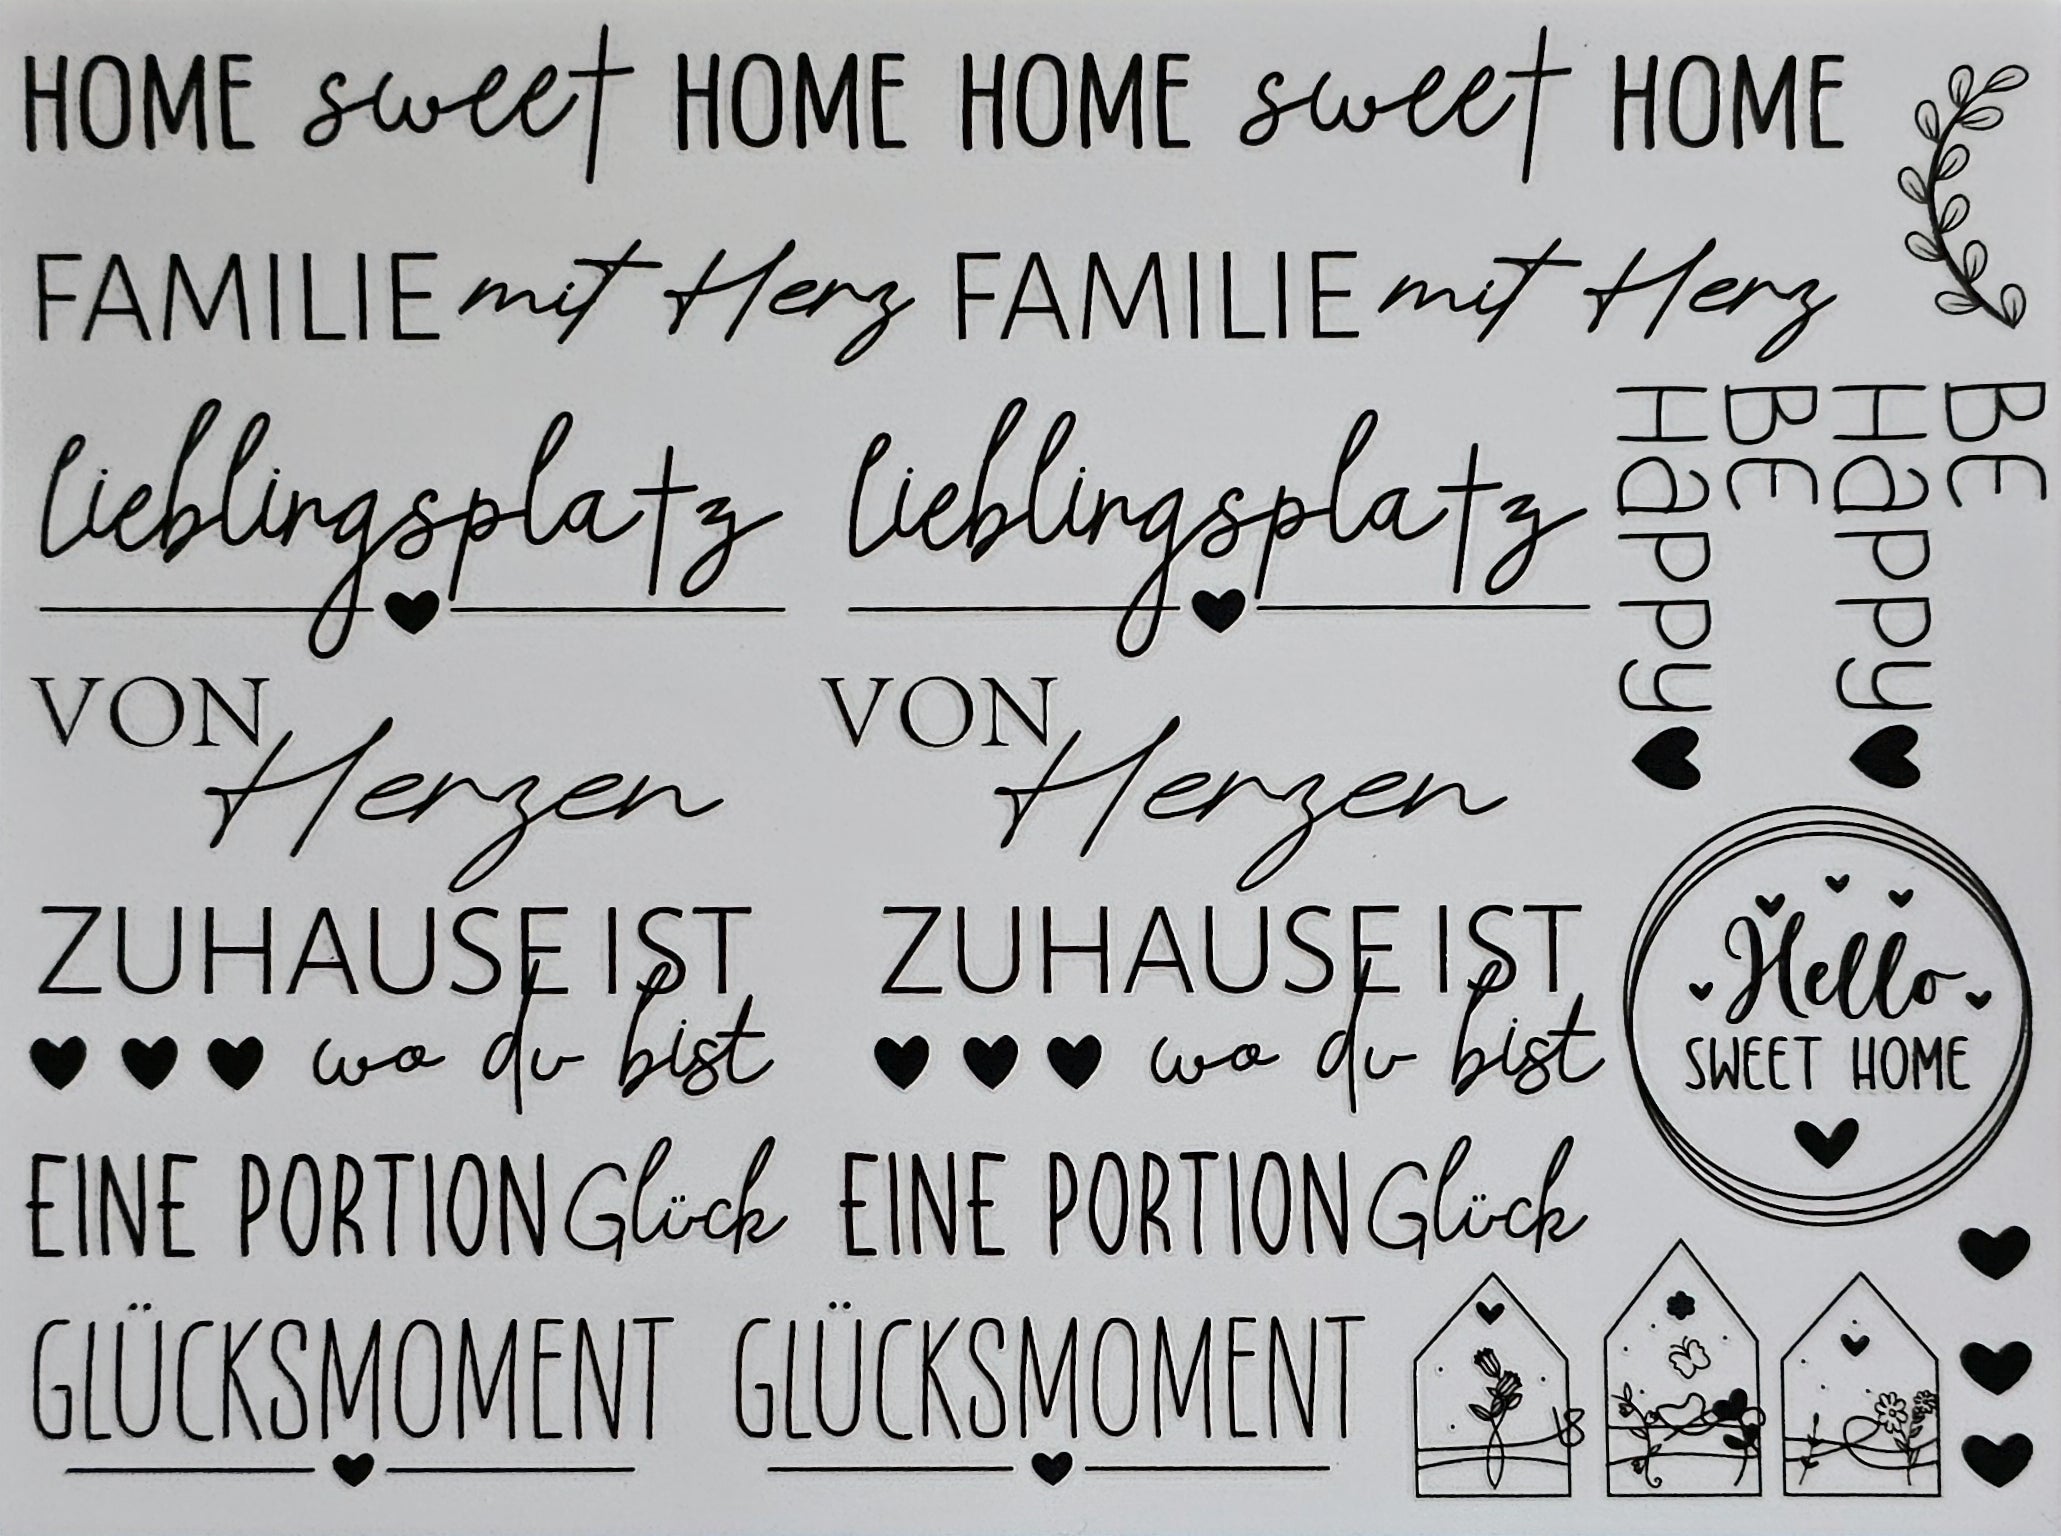 HOME sweet HOME HOME sweet HOME
FAMILIE mit Herz FAMILIE mit Herz
Lieblingsplatz Lieblingsplatz
VON VON
Herzen Herzen
ZUHAUSE IST ZUHAUSE IST
wo du bist wo du bist
EINE PORTION Glück EINE PORTION Glück
GLÜCKSMOMENT GLÜCKSMOMENT
BE
Happy
BE
Happy
Hello
SWEET HOME